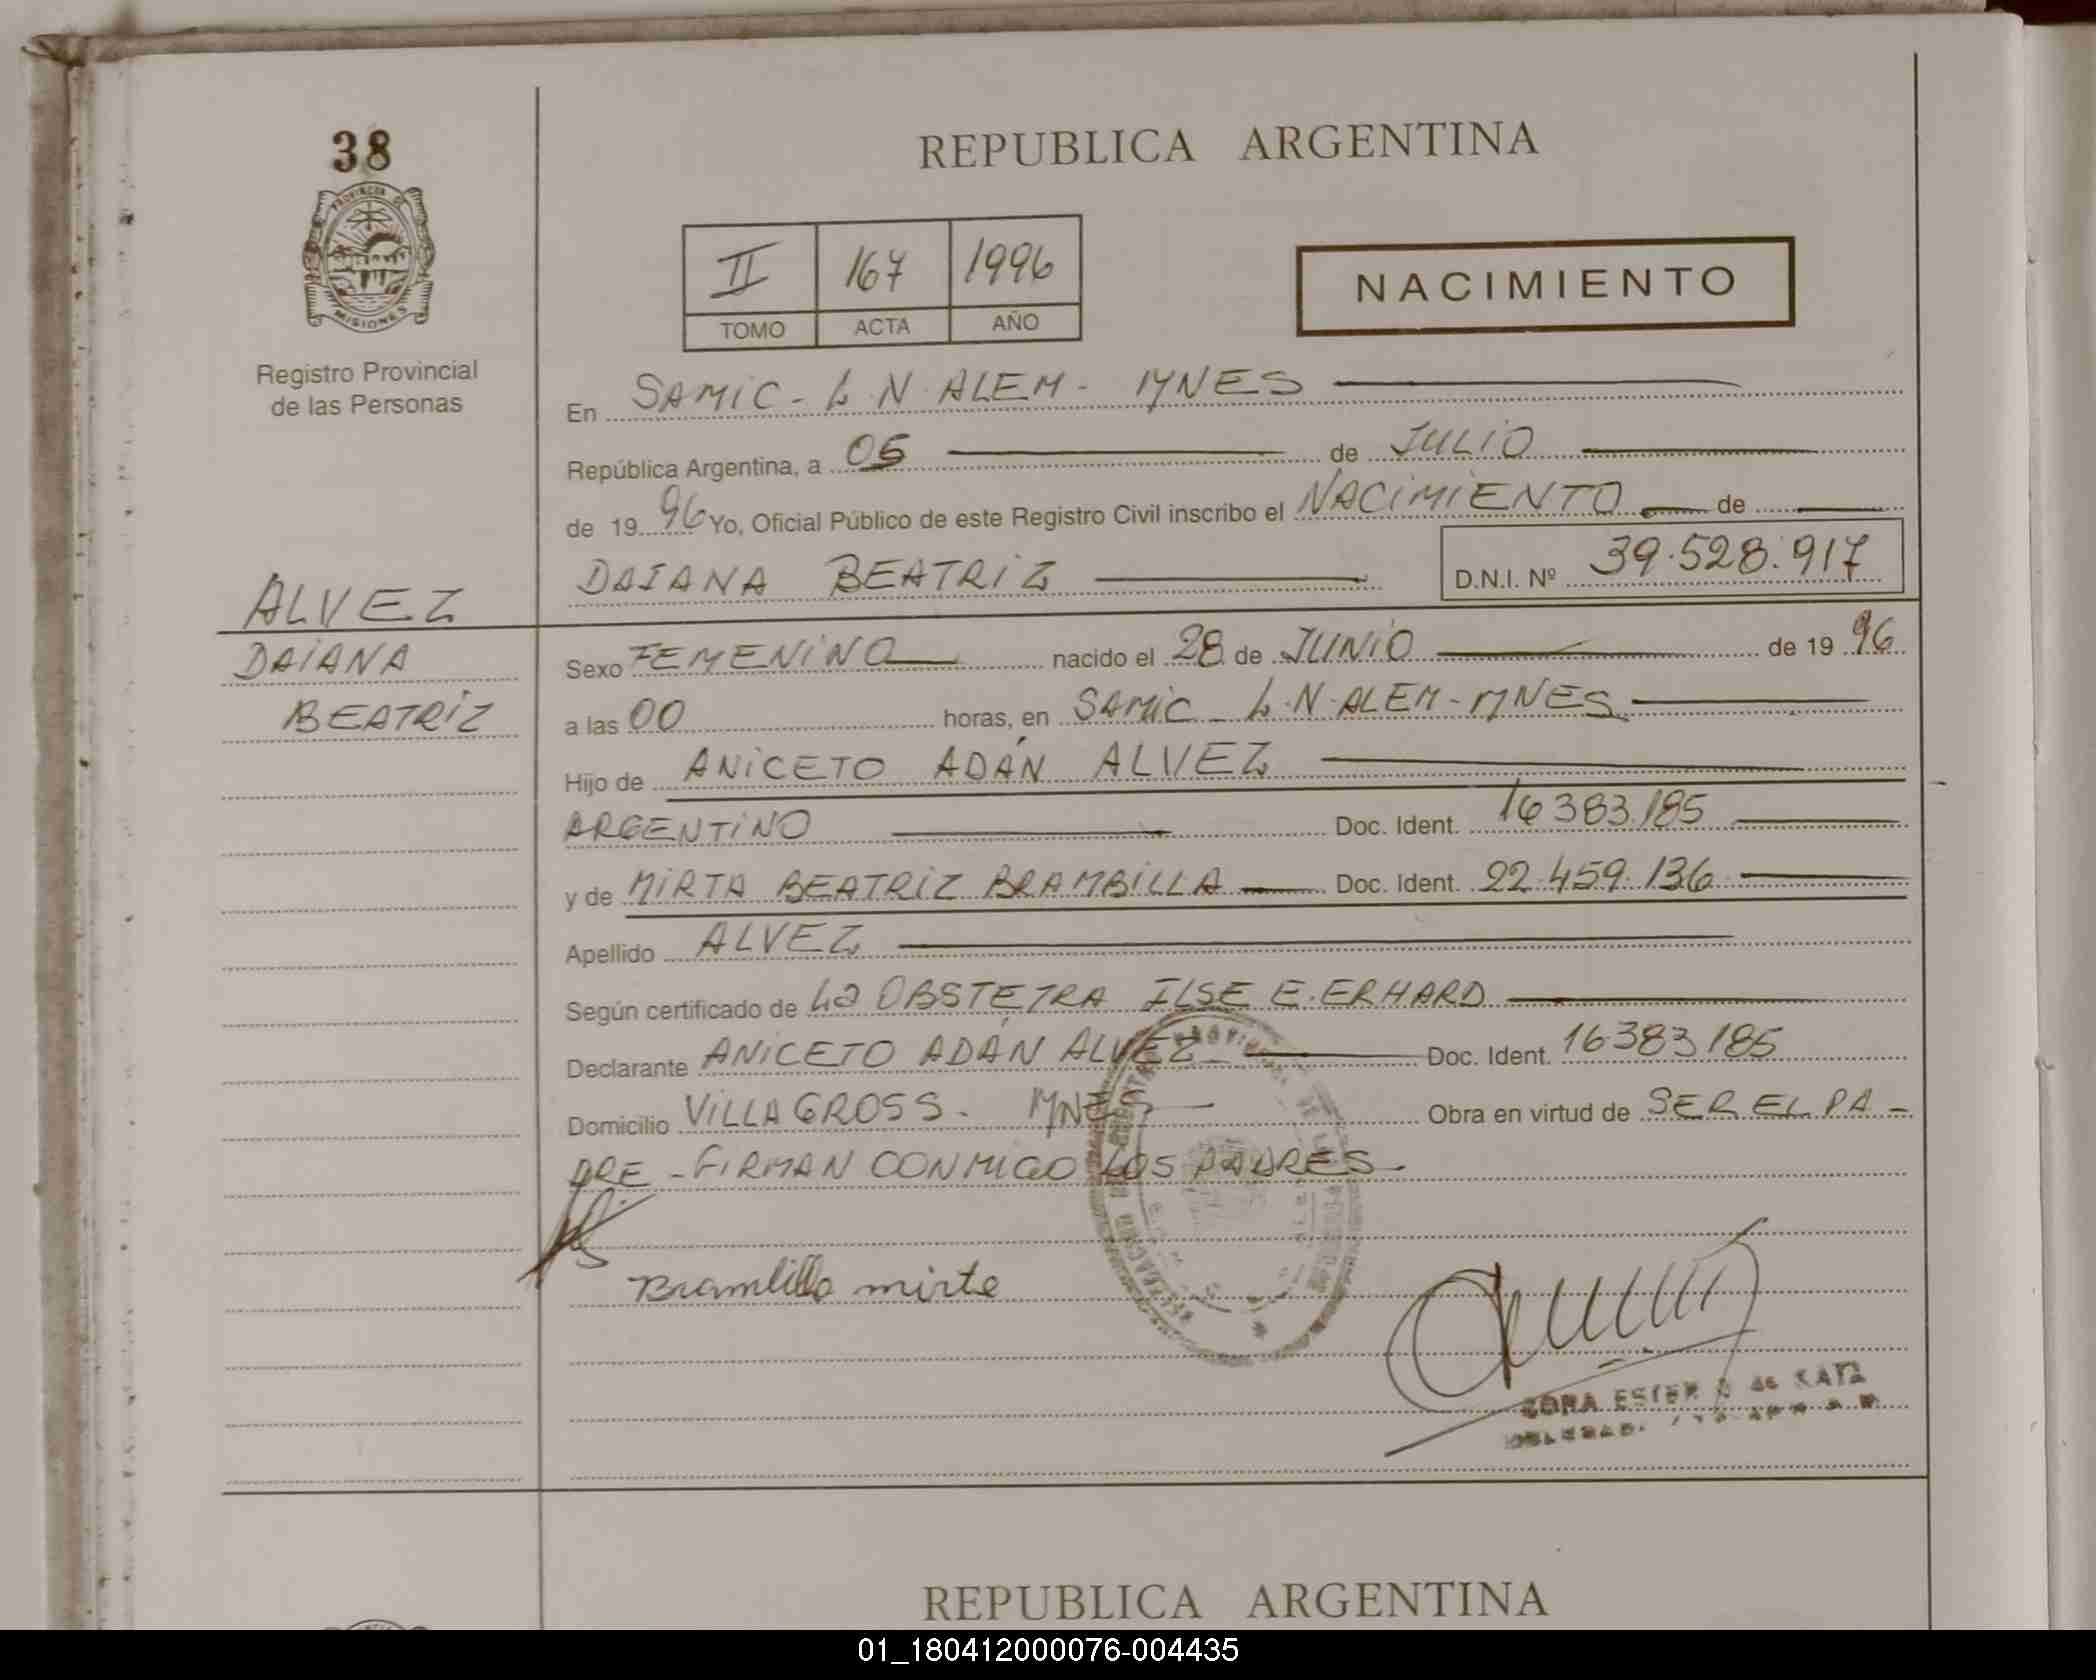 38
PROVINCIA DE
MISIONES
Registro Provincial
de las Personas
ALVEZ
DAIANA
BEATRIZ
REPUBLICA ARGENTINA
II 167 1996
TOMO ACTA AÑO
NACIMIENTO
En SAMIC - L. N. ALEM - MNES
República Argentina, a 05 de JULIO
de 1996 Yo, Oficial Público de este Registro Civil inscribo el NACIMIENTO de
DAIANA BEATRIZ D.N.I. Nº 39.528.917
Sexo FEMENINO nacido el 28 de JUNIO de 1996
a las 00 horas, en SAMIC - L.N. ALEM - MNES
Hijo de ANICETO ADÁN ALVEZ
ARGENTINO Doc. Ident. 16383.185
y de MIRTA BEATRIZ BRAMBILLA Doc. Ident. 22.459.136
Apellido ALVEZ
Según certificado de La OBSTETRA ILSE E. ERHARD
Declarante ANICETO ADÁN ALVEZ Doc. Ident. 16383185
Domicilio VILLA GROSS. MNES Obra en virtud de SER EL PA-
DRE - FIRMAN CONMIGO LOS PADRES.
Brambilla mirta
ESTER de KATZ
REPUBLICA ARGENTINA
01_180412000076-004435